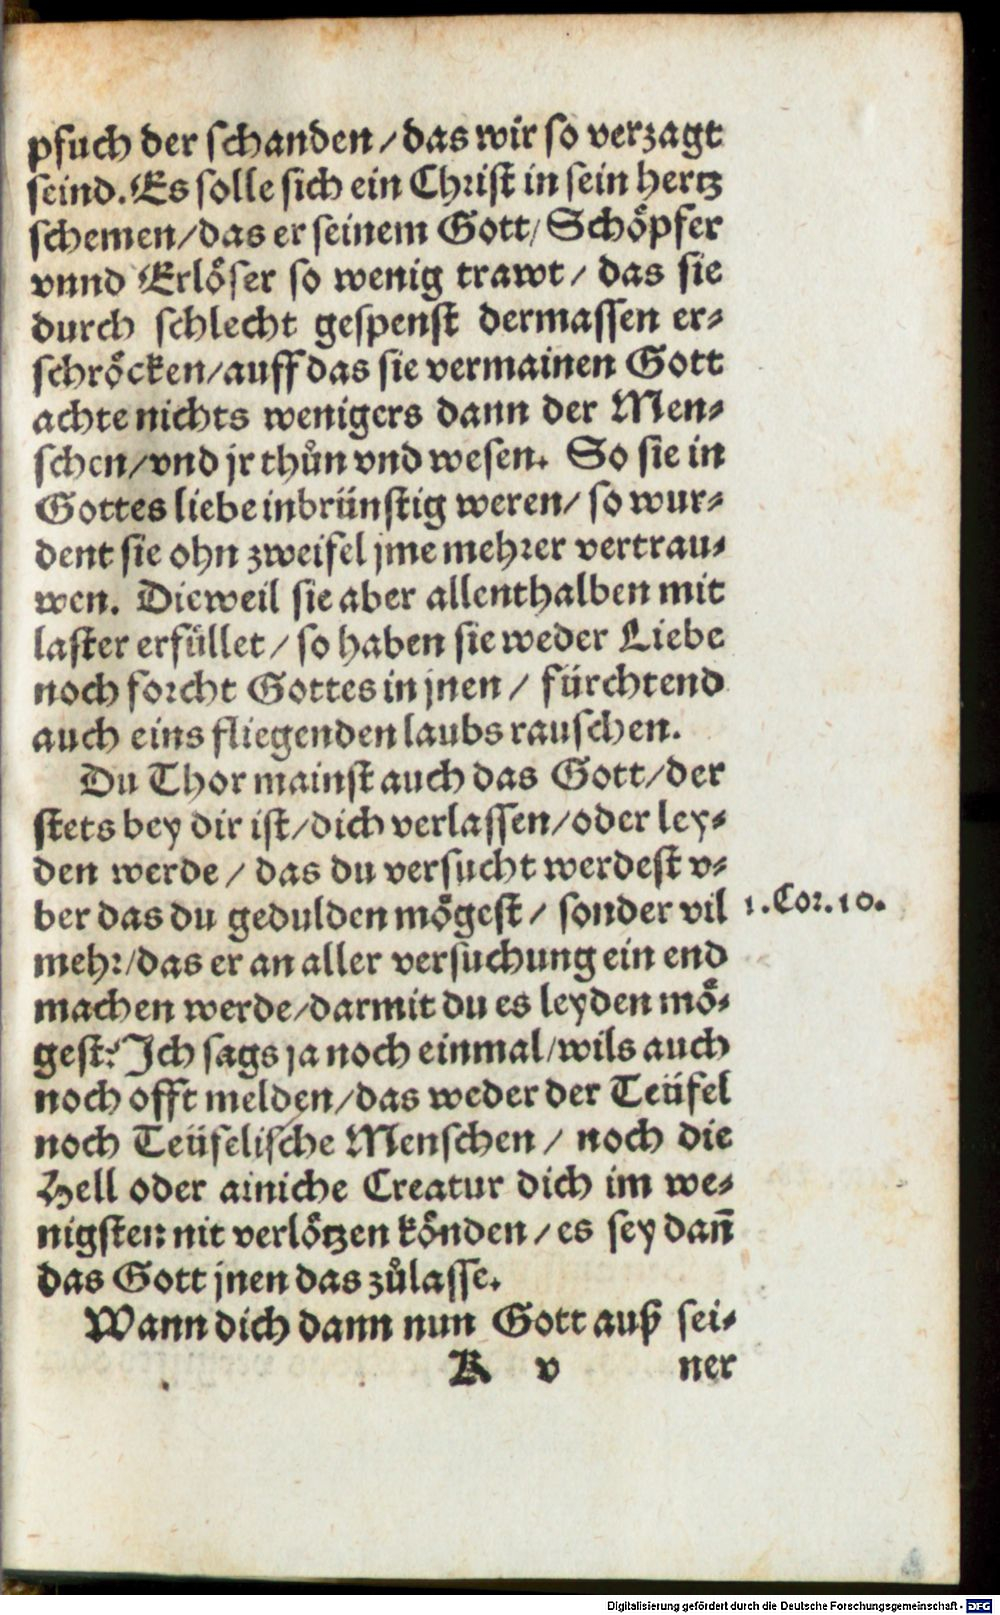 pfuch der schanden / das wir so verzagt
seind. Es solle sich ein Christ in sein hertz
schemen / das er seinem Gott / Schöpfer
vnnd Erlöser so wenig trawt / das sie
durch schlecht gespenst dermassen er-
schröcken / auff das sie vermainen Gott
achte nichts wenigers dann der Men-
schen / vnd jr thůn vnd wesen. So sie in
Gottes liebe inbrünstig weren / so wur-
dent sie ohn zweifel jme mehrer vertrau-
wen. Dieweil sie aber allenthalben mit
laster erfüllet / so haben sie weder Liebe
noch forcht Gottes in jnen / fürchtend
auch eins fliegenden laubs rauschen.
Du Thor mainst auch das Gott / der
stets bey dir ist / dich verlassen / oder ley-
den werde / das du versucht werdest v-
ber das du gedulden mögest / sonder vil
1. Cor. 10.
mehr / das er an aller versuchung ein end
machen werde / darmit du es leyden mö-
gest? Ich sags ja noch einmal / wils auch
noch offt melden / das weder der Teüfel
noch Teüfelische Menschen / noch die
Hell oder ainiche Creatur dich im we-
nigsten nit verlötzen könden / es sey dañ
das Gott jnen das zůlasse.
Wann dich dann nun Gott auß sei-
K v ner
Digitalisierung gefördert durch die Deutsche Forschungsgemeinschaft - DFG